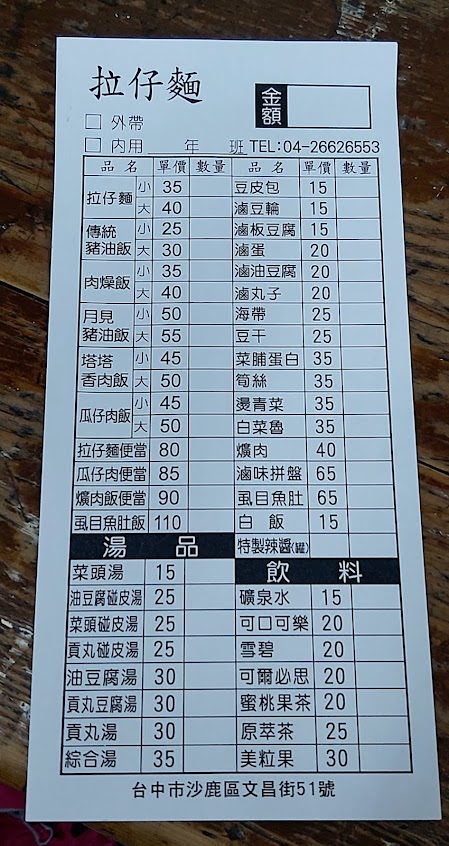 拉仔麵
金額
□ 外帶
□ 內用 年 班 TEL:04-26626553
品名 單價 數量 品名 單價 數量
拉仔麵 小 35 豆皮包 15
大 40 滷豆輪 15
傳統豬油飯 小 25 滷板豆腐 15
大 30 滷蛋 20
肉燥飯 小 35 滷油豆腐 20
大 40 滷丸子 20
月見豬油飯 小 50 海帶 25
大 55 豆干 25
塔塔香肉飯 小 45 菜脯蛋白 35
大 50 筍絲 35
瓜仔肉飯 小 45 燙青菜 35
大 50 白菜魯 35
拉仔麵便當 80 爌肉 40
瓜仔肉便當 85 滷味拼盤 65
爌肉飯便當 90 虱目魚肚 65
虱目魚肚飯 110 白飯 15
湯品 特製辣醬(罐)
菜頭湯 15 飲料
油豆腐碰皮湯 25 礦泉水 15
菜頭碰皮湯 25 可口可樂 20
貢丸碰皮湯 25 雪碧 20
油豆腐湯 30 可爾必思 20
貢丸豆腐湯 30 蜜桃果茶 20
貢丸湯 30 原萃茶 25
綜合湯 35 美粒果 30
台中市沙鹿區文昌街51號